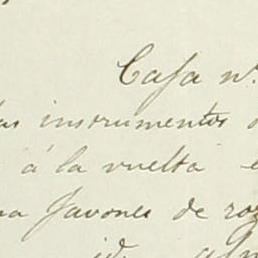 Casa nº.
as instrumentos
á la vuelta
Javones de
id.